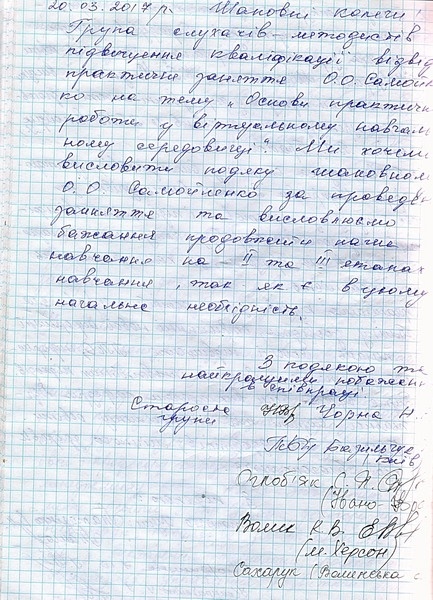 20.03.2017 р. Шановні колеги!
Група слухачів-методистів
підвищення кваліфікації відвід
практичне заняття О.О. Самойл
ко на тему „Основи практичн
роботи у віртуальному навчал
ному середовищі". Ми хочемо
висловити подяку шановном
О.О Самойленко за проведен
заняття та висловлюємо
бажання продовжити наше
навчання на II та III етапах
навчання, так як є в цьому
нагальна необхідність.
З подякою та
найкращими побажан
в співпраці
Староста Чорна Н.
групи
Базильчук
(Київ
Оглоб'як С. П.
(Івано-Фра
Волик К. В.
(м. Херсон)
Сахарук (Волинська